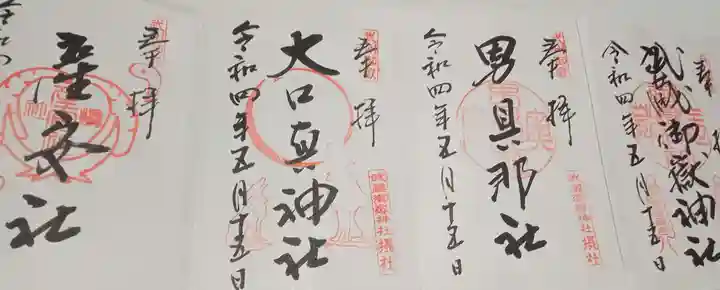 奉拝
武蔵御嶽神社
令和四年五月十五日
奉拝
男具那社
令和四年五月十五日
武蔵御嶽神社 摂社
奉拝
大口真神社
令和四年五月十五日
武蔵御嶽神社 摂社
奉拝
産安社